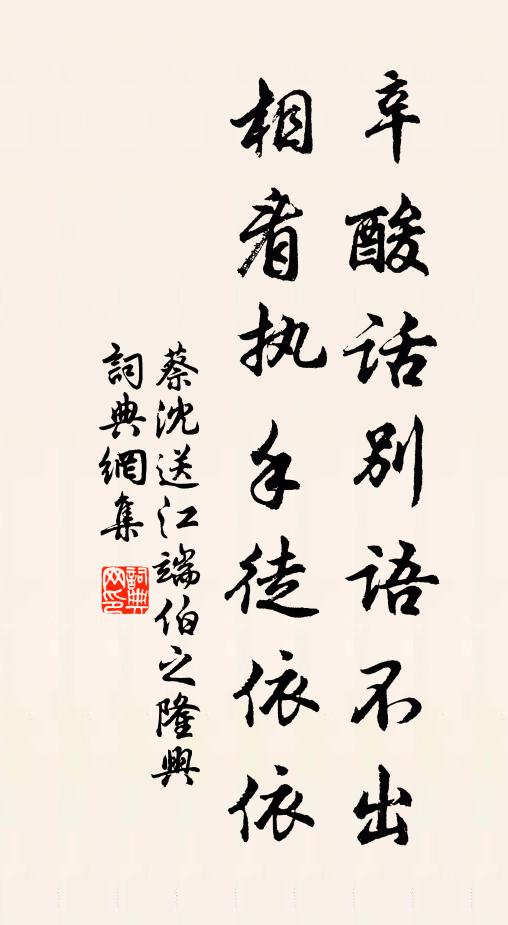 辛酸话别语不出
相看执手徒依依
蔡沈送江端伯之隆興
詞典網集
詞典
网印